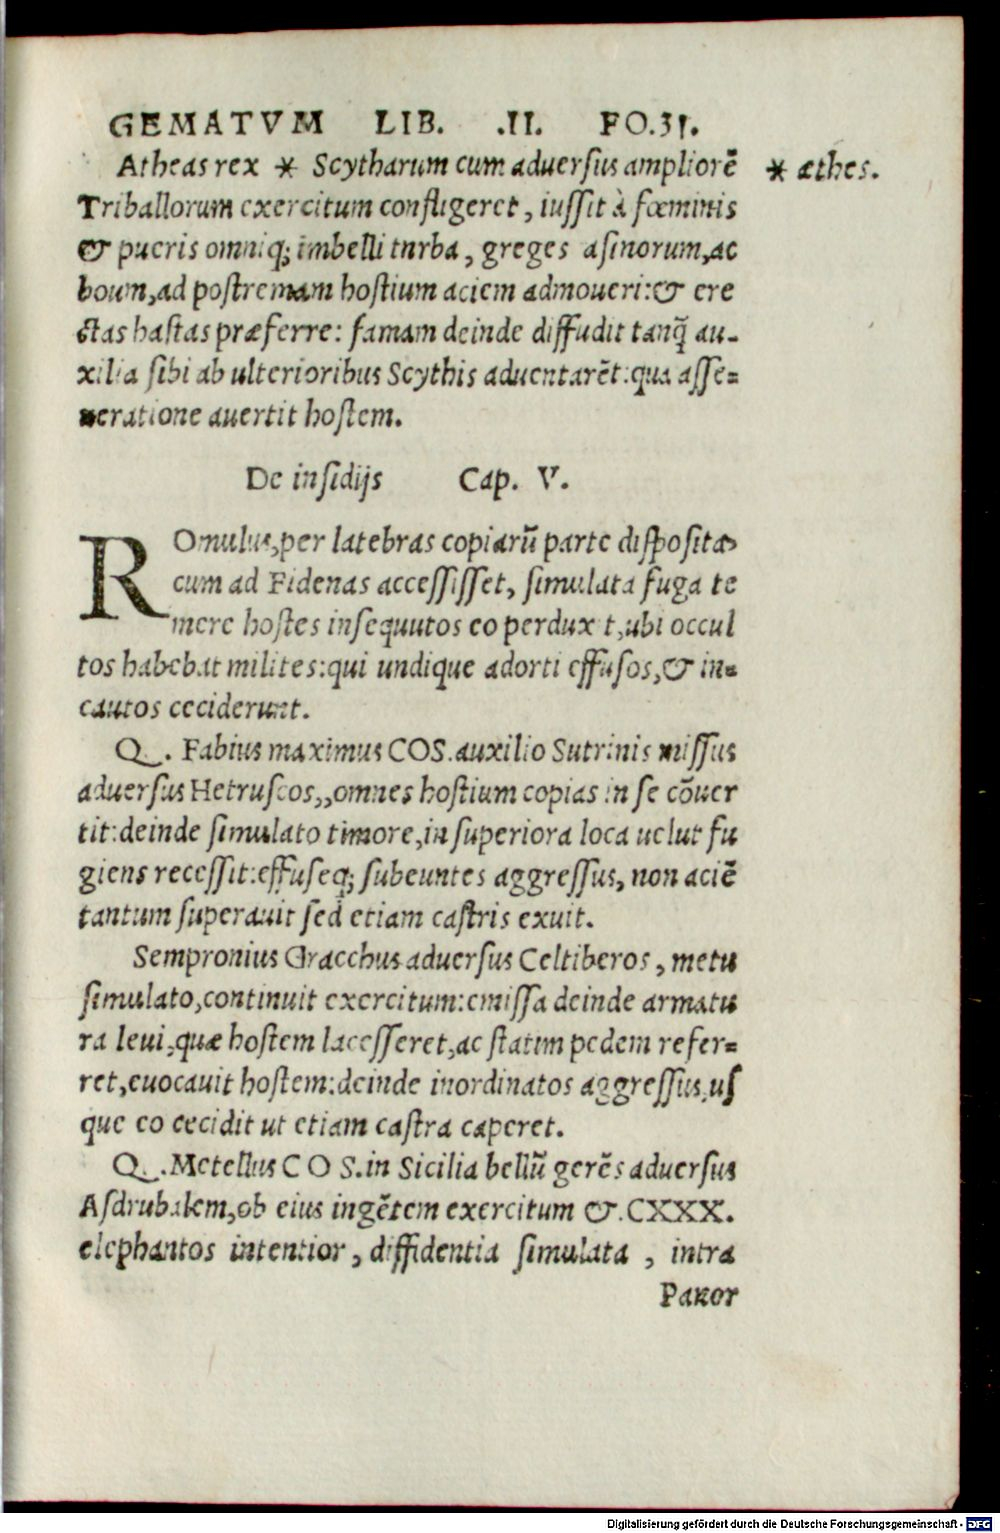 GEMATVM LIB. .II. FO.31.
Atheas rex * Scytharum cum aduersus ampliorē * æthes.
Triballorum exercitum confligeret, iussit à fœminis
& pueris omniq; imbelli tnrba, greges asinorum, ac
boum, ad postremam hostium aciem admoueri: & ere
ctas hastas præferre: famam deinde diffudit tanq̃ au-
xilia sibi ab ulterioribus Scythis aduentarēt: qua asse=
ueratione auertit hostem.
De insidijs Cap. V.
ROmulus, per latebras copiarū parte disposita,
cum ad Fidenas accessisset, simulata fuga te
mere hostes insequutos eo perdux t, ubi occul
tos habebat milites: qui undique adorti effusos, & in=
cautos ceciderunt.
Q. Fabius maximus COS. auxilio Sutrinis missus
aduersus Hetruscos,, omnes hostium copias in se cōuer
tit: deinde simulato timore, in superiora loca uelut fu
giens recessit: effuseq; subeuntes aggressus, non aciē
tantum superauit sed etiam castris exuit.
Sempronius Gracchus aduersus Celtiberos, metu
simulato, continuit exercitum: emissa deinde armatu
ra leui, quæ hostem lacesseret, ac statim pedem refer=
ret, euocauit hostem: deinde inordinatos aggressus, us
que eo cecidit ut etiam castra caperet.
Q. Metellus C O S. in Sicilia bellū gerēs aduersus
Asdrubalem, ob eius ingētem exercitum &. CXXX.
elephantos intentior, diffidentia simulata, intra
Panor
Digitalisierung gefördert durch die Deutsche Forschungsgemeinschaft - DFG